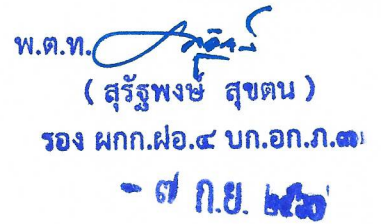 พ.ต.ท.
( สุรัฐพงษ์ สุขตน )
รอง ผกก.ฝอ.๔ บก.อก.ภ.๓
- ๗ ก.ย. ๒๕๖๐